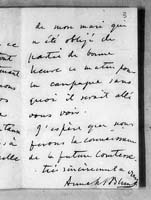 de mon mari qui
a été obligé de
partir de bonne
heure ce matin pour
la campagne sans
quoi il serait allé
vous voir.
J'espère que nous
ferons la connaissance
de la future Comtesse
très sincèrement à vous